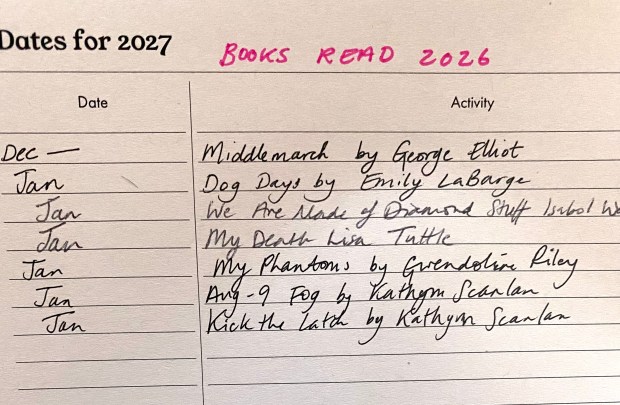 Dates for 2027 BOOKS READ 2026
Date Activity
Dec — Middlemarch by George Elliot
Jan Dog Days by Emily LaBarge
Jan We Are Made of Diamond Stuff Isabel Wa
Jan My Death Lisa Tuttle
Jan My Phantoms by Gwendoline Riley
Jan Aug-9 Fog by Kathryn Scanlan
Jan Kick the Latch by Kathryn Scanlan